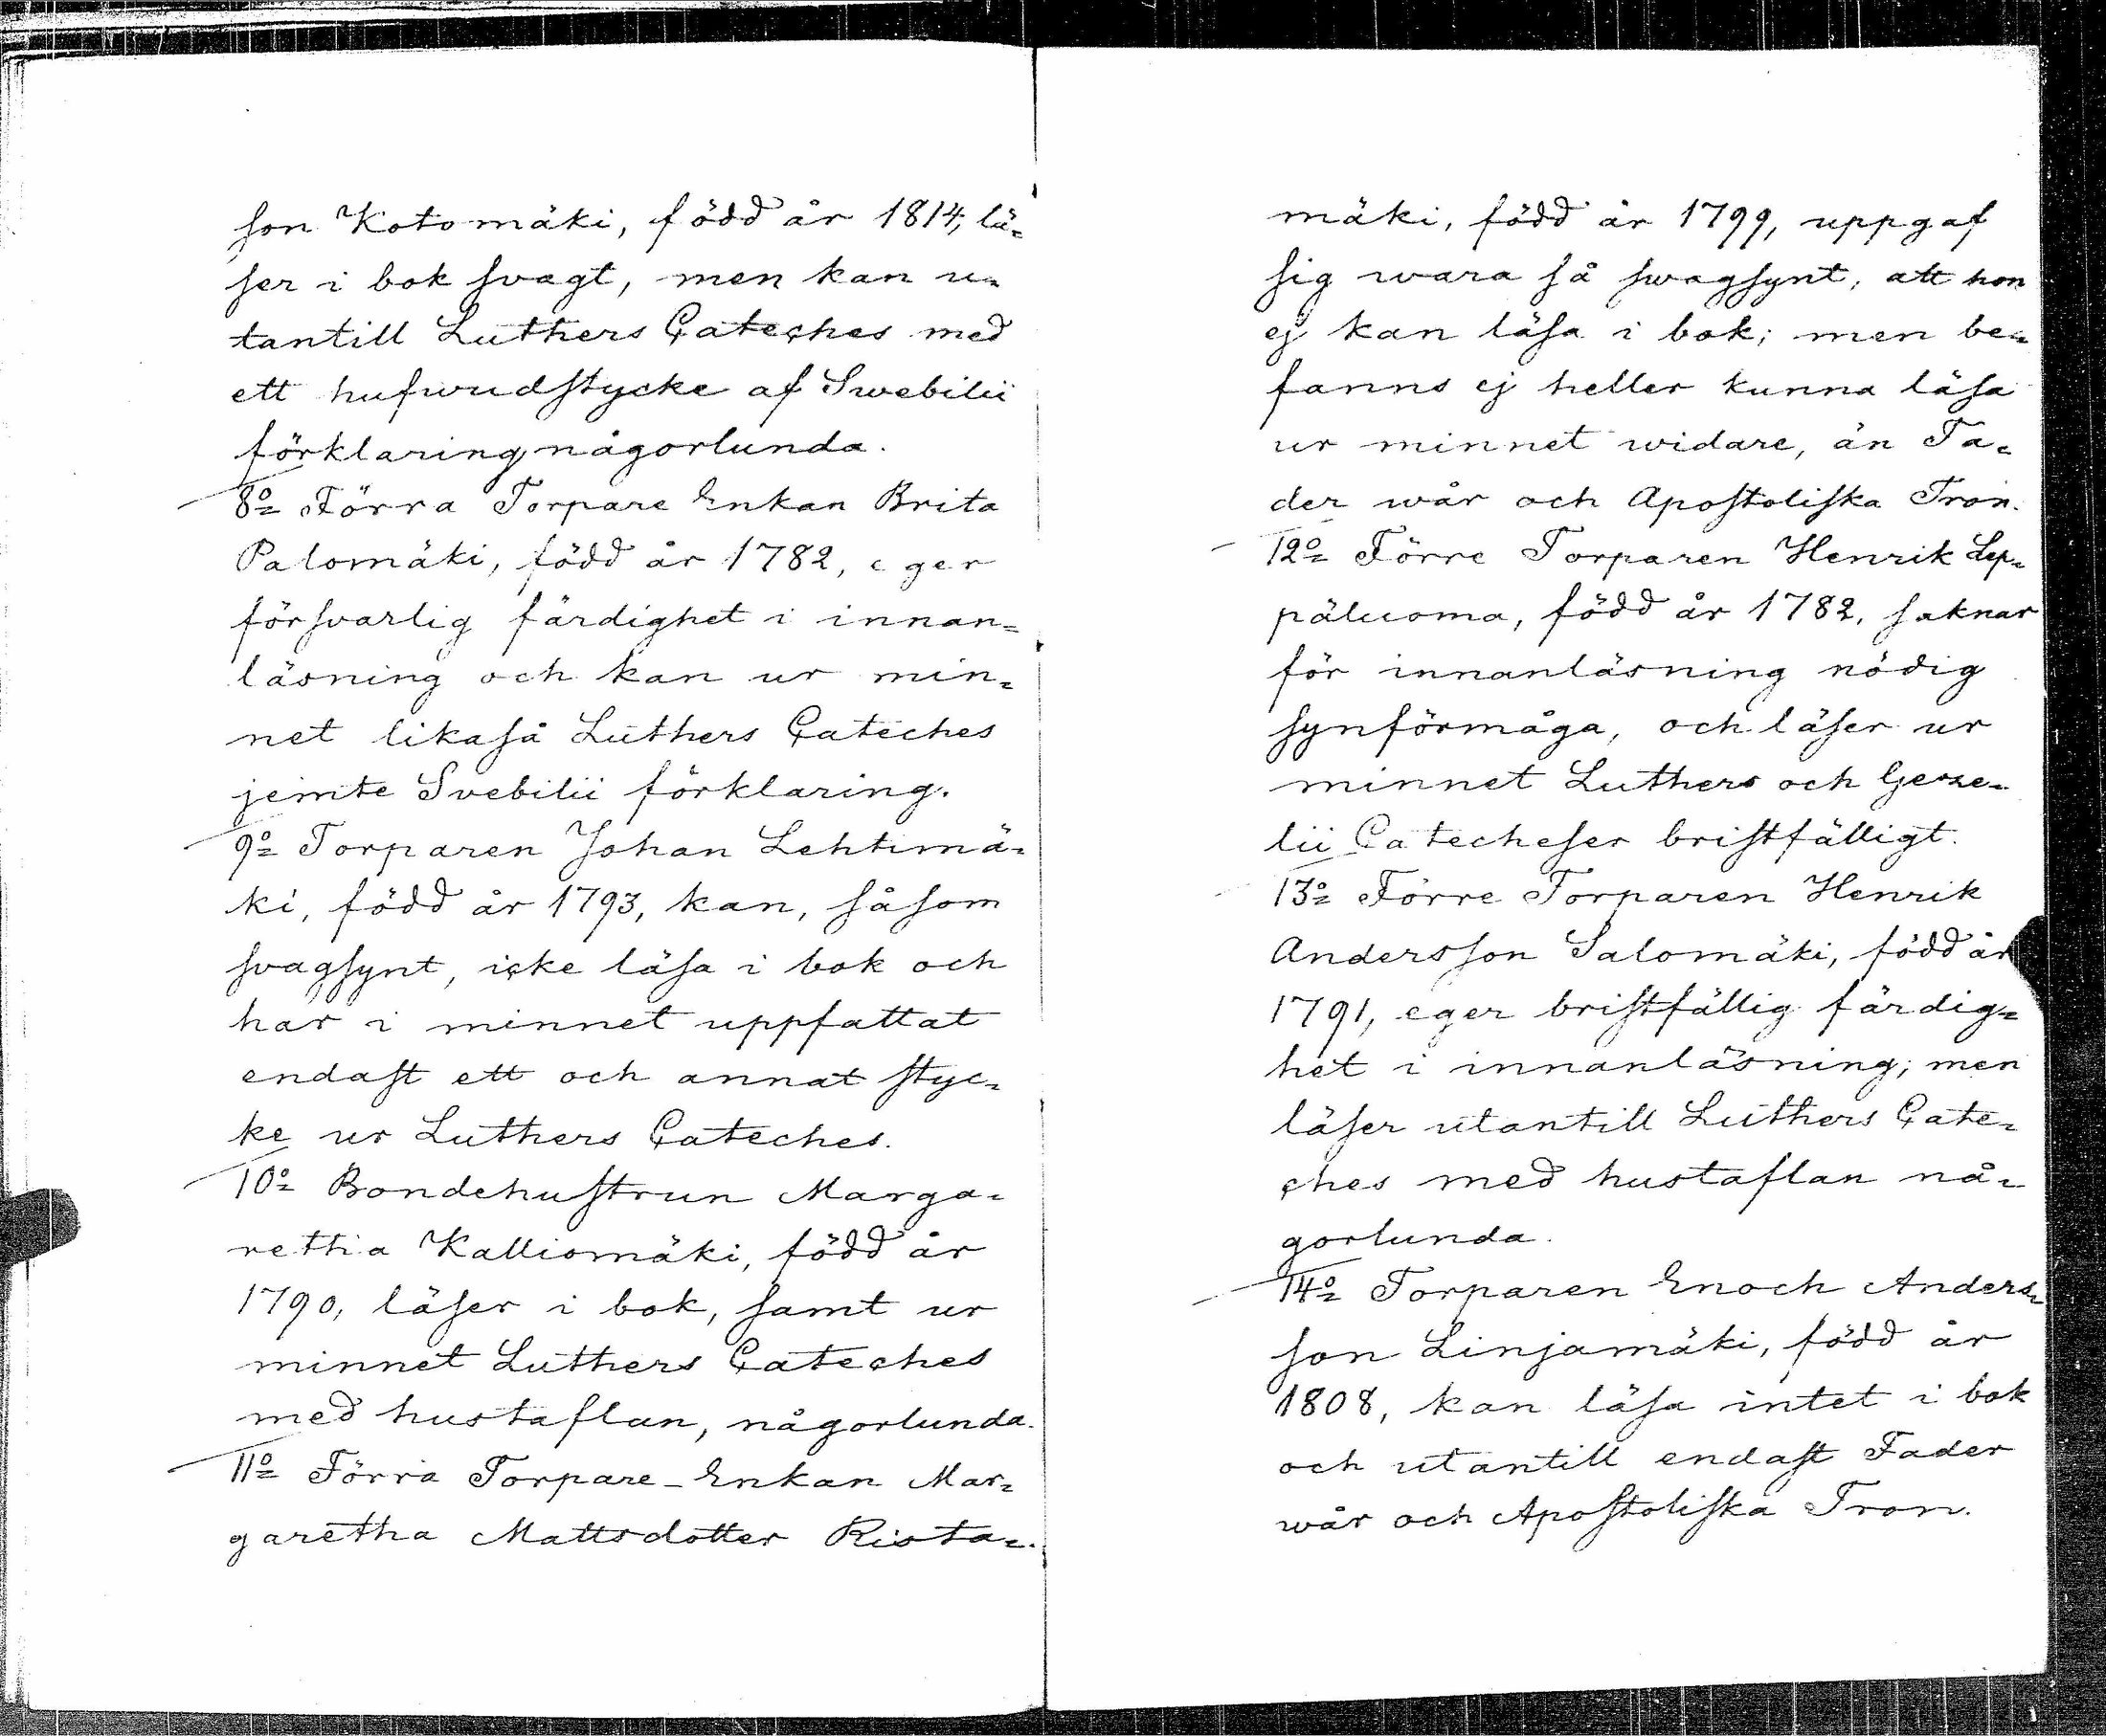 son Kotomäki, född år 1814, lä=
ser i bok svagt, men kan u=
tantill Luthers Cateches med
ett hufwudstycke af Swebilii
förklaring någorlunda.
8o= Förra Torpare Enkan Brita
Palomäki, född år 1782, eger
försvarlig färdighet i innan=
läsning och kan ur min=
net likaså Luthers Cateches
jemte Svebilii förklaring.
9o= Torparen Johan Lehtimä=
ki, född år 1793, kan, såsom
svagsynt, icke läsa i bok och
har i minnet uppfattat
endast ett och annat styc=
ke ur Luthers Cateches.
10o= Bondehustrun Marga=
retha Kalliomäki, född år
1790, läser i bok, samt ur
minnet Luthers Cateches
med hustaflan, någorlunda.
11o= Förra Torpare-Enkan Mar=
garetha Mattsdotter Rista=
mäki, född år 1799, uppgaf
sig wara så swagsynt, att hon
ej kan läsa i bok; men be=
fanns ej heller kunna läsa
ur minnet widare, än Fa=
der wår och Apostoliska Tron.
12o= Förre Torparen Henrik Lep=
päluoma, född år 1782, saknar
för innanläsning nödig
synförmåga, och läser ur
minnet Luthers och Geze=
lii Catecheser bristfälligt.
13o= Förre Torparen Henrik
Andersson Salomäki, född år
1791, eger bristfällig färdig=
het i innanläsning; men
läser utantill Luthers Cate=
ches med hustaflan nå=
gorlunda.
14o= Torparen Enoch Anders=
son Linjamäki, född år
1808, kan läsa intet i bok
och utantill endast Fader
wår och Apostoliska Tron.